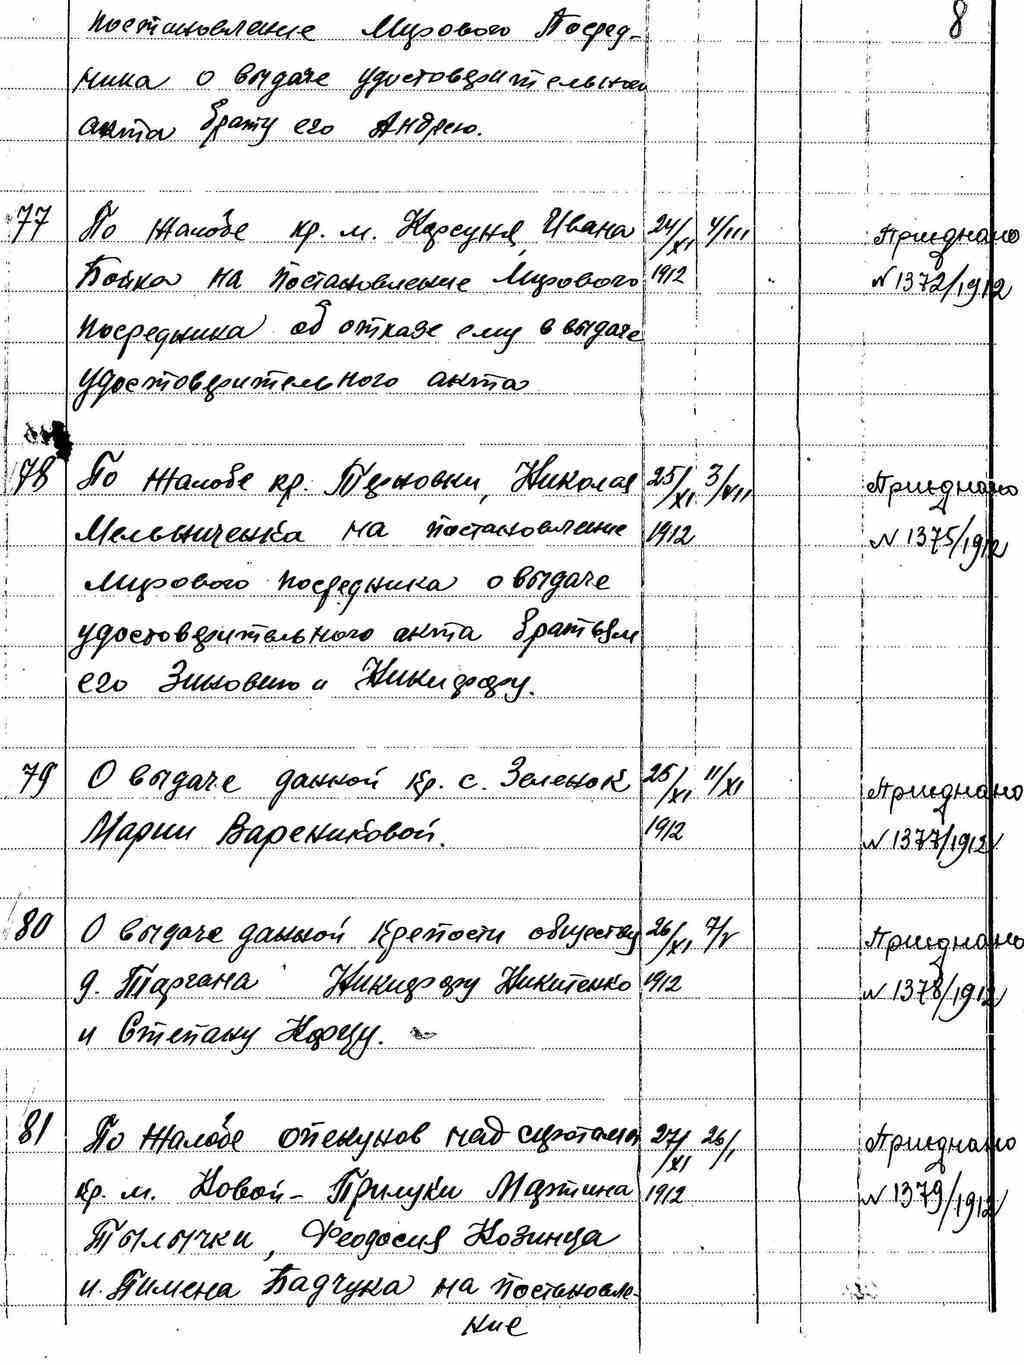 8
постановление Мирового Посред-
ника о выдаче удостоверительного
акта брату его Андрею.
77 По жалобе кр. м. Корсуня, Ивана 24/XI 4/III Приєднано
Бойка на постановление Мирового 1912 N 1372/1912
Посредника об отказе ему в выдаче
удостоверительного акта
78 По жалобе кр. Терновки, Николая 25/XI 3/VII Приєднано
Мельниченка на постановление 1912 N 1375/1912
Мирового посредника о выдаче
удостоверительного акта братьям
его Зиновию и Никифору.
79 О выдаче данной кр. с. Зеленок 25/XI 11/XI Приєднано
Марии Варениковой. 1912 N 1377/1912
80 О выдаче данной крепости обществу 26/XI 7/V Приєднано
д. Таргана Никифору Никитенко 1912 N 1378/1912
и Степану Корцу.
81 По жалобе опекунов над сиротами 27/XI 26/I Приєднано
кр. м. Новой-Прилуки Мартина 1912 N 1379/1912
Тылычки, Феодосия Козинца
и Пимена Бадчука на постановле-
ние